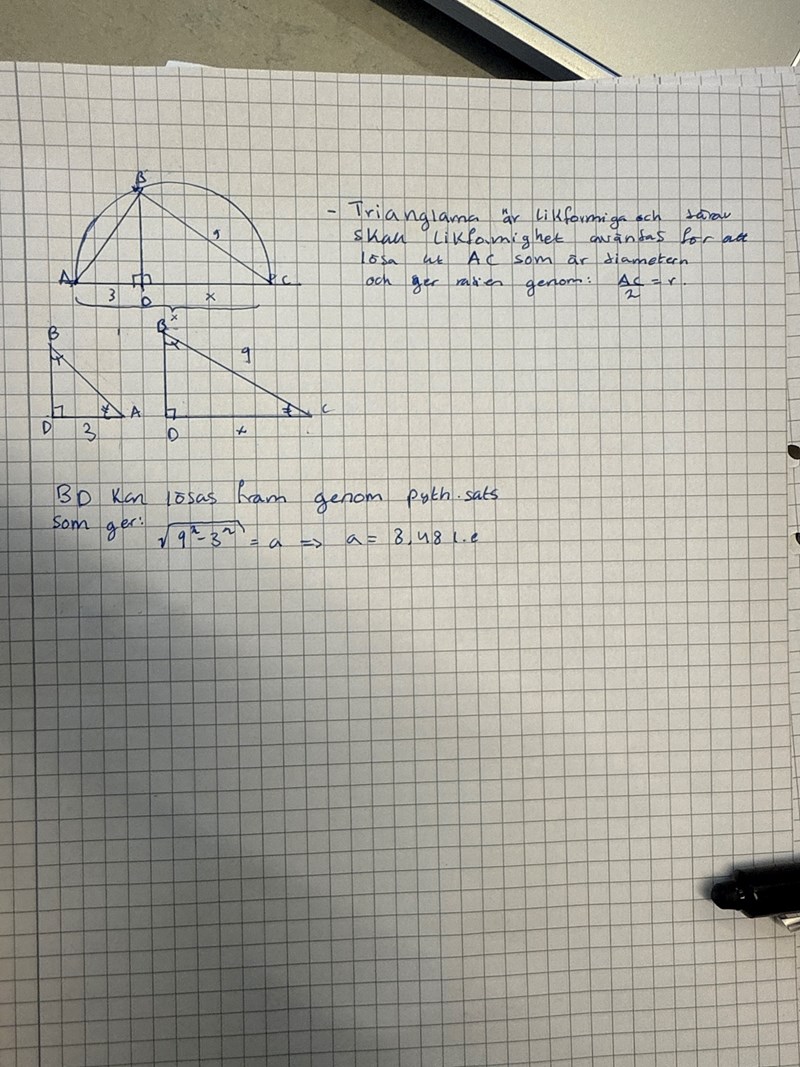 B
9
A
C
3
D
x
x
- Trianglarna är likformiga och därav
skall likformighet användas för att
lösa ut AC som är diametern
och ger radien genom: AC/2 = r.
B
D
3
A
B
9
D
x
C
BD kan lösas fram genom pyth. sats
som ger:
√(9²-3²) = a => a = 8,48 l.e